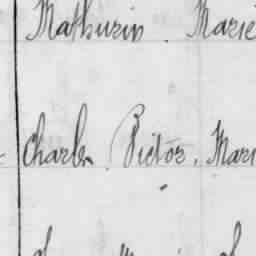 Mathurin. Marie
Charles. Victor. Mari